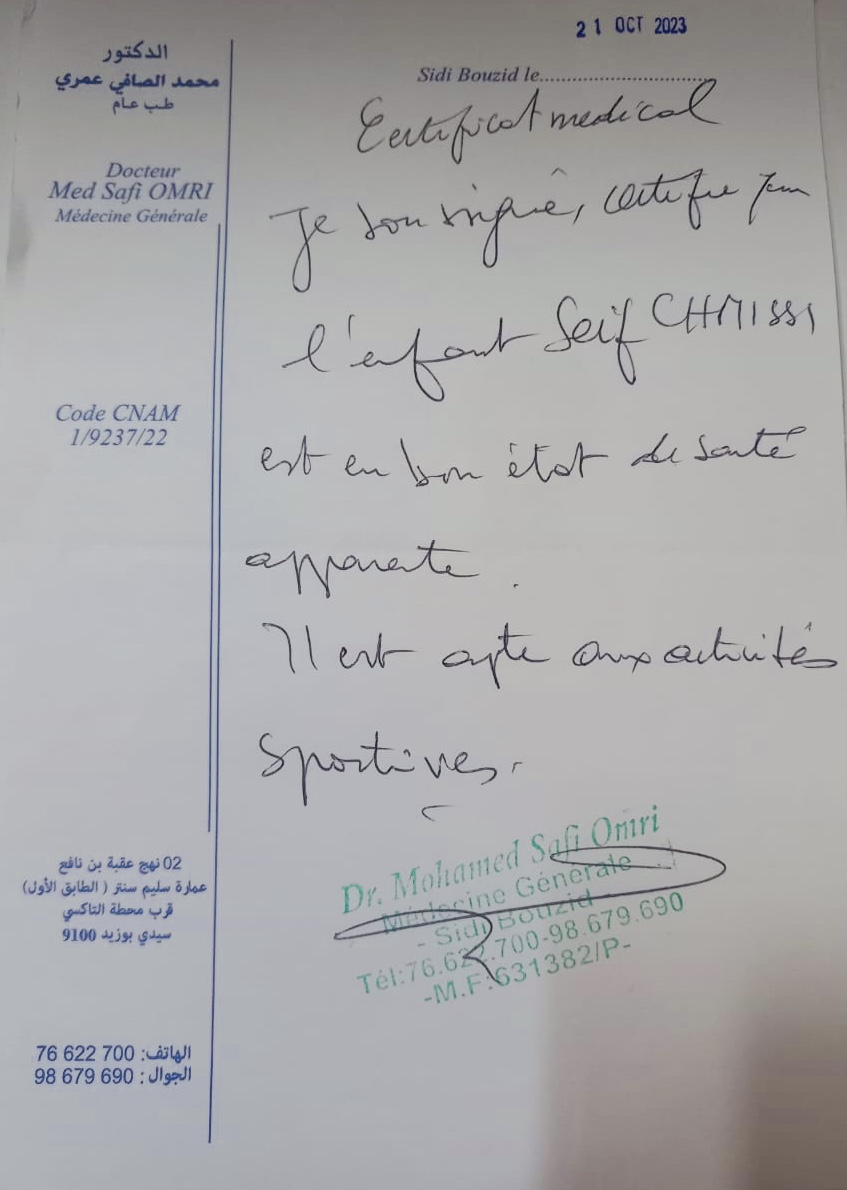 21 OCT 2023
الدكتور
محمد الصافي عمري
طب عام
Docteur
Med Safi OMRI
Médecine Générale
Code CNAM
1/9237/22
Sidi Bouzid le
Certificat medical
Je soussigné, certifie que
l'enfant Seif CHMISSI
est en bon état de santé
apparente.
Il est apte aux activités
sportives.
Dr. Mohamed Safi Omri
Médecine Générale
- Sidi Bouzid
Tél:76.622.700-98.679.690
-M.F:631382/P-
02 نهج عقبة بن نافع
عمارة سليم سنتر ( الطابق الأول)
قرب محطة التاكسي
سيدي بوزيد 9100
الهاتف: 76 622 700
الجوال : 98 679 690